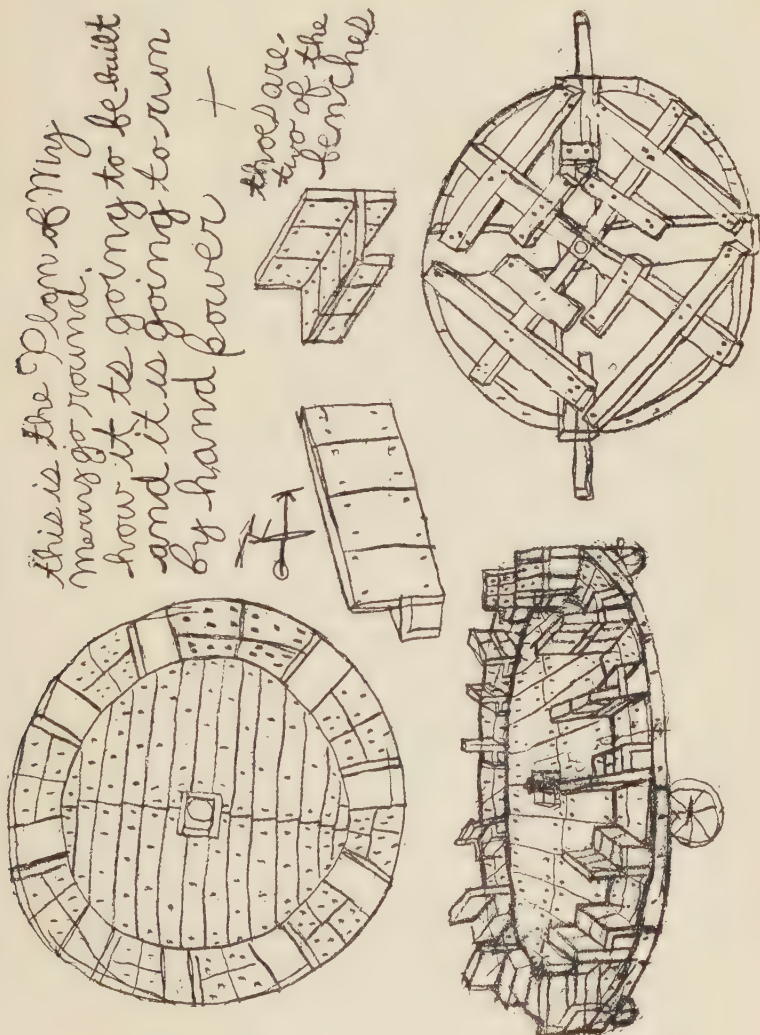 this is the Plan of My
merry go round.
how it ts going to be built
and it is going to run
by hand power
thoes are.
two of the
benches